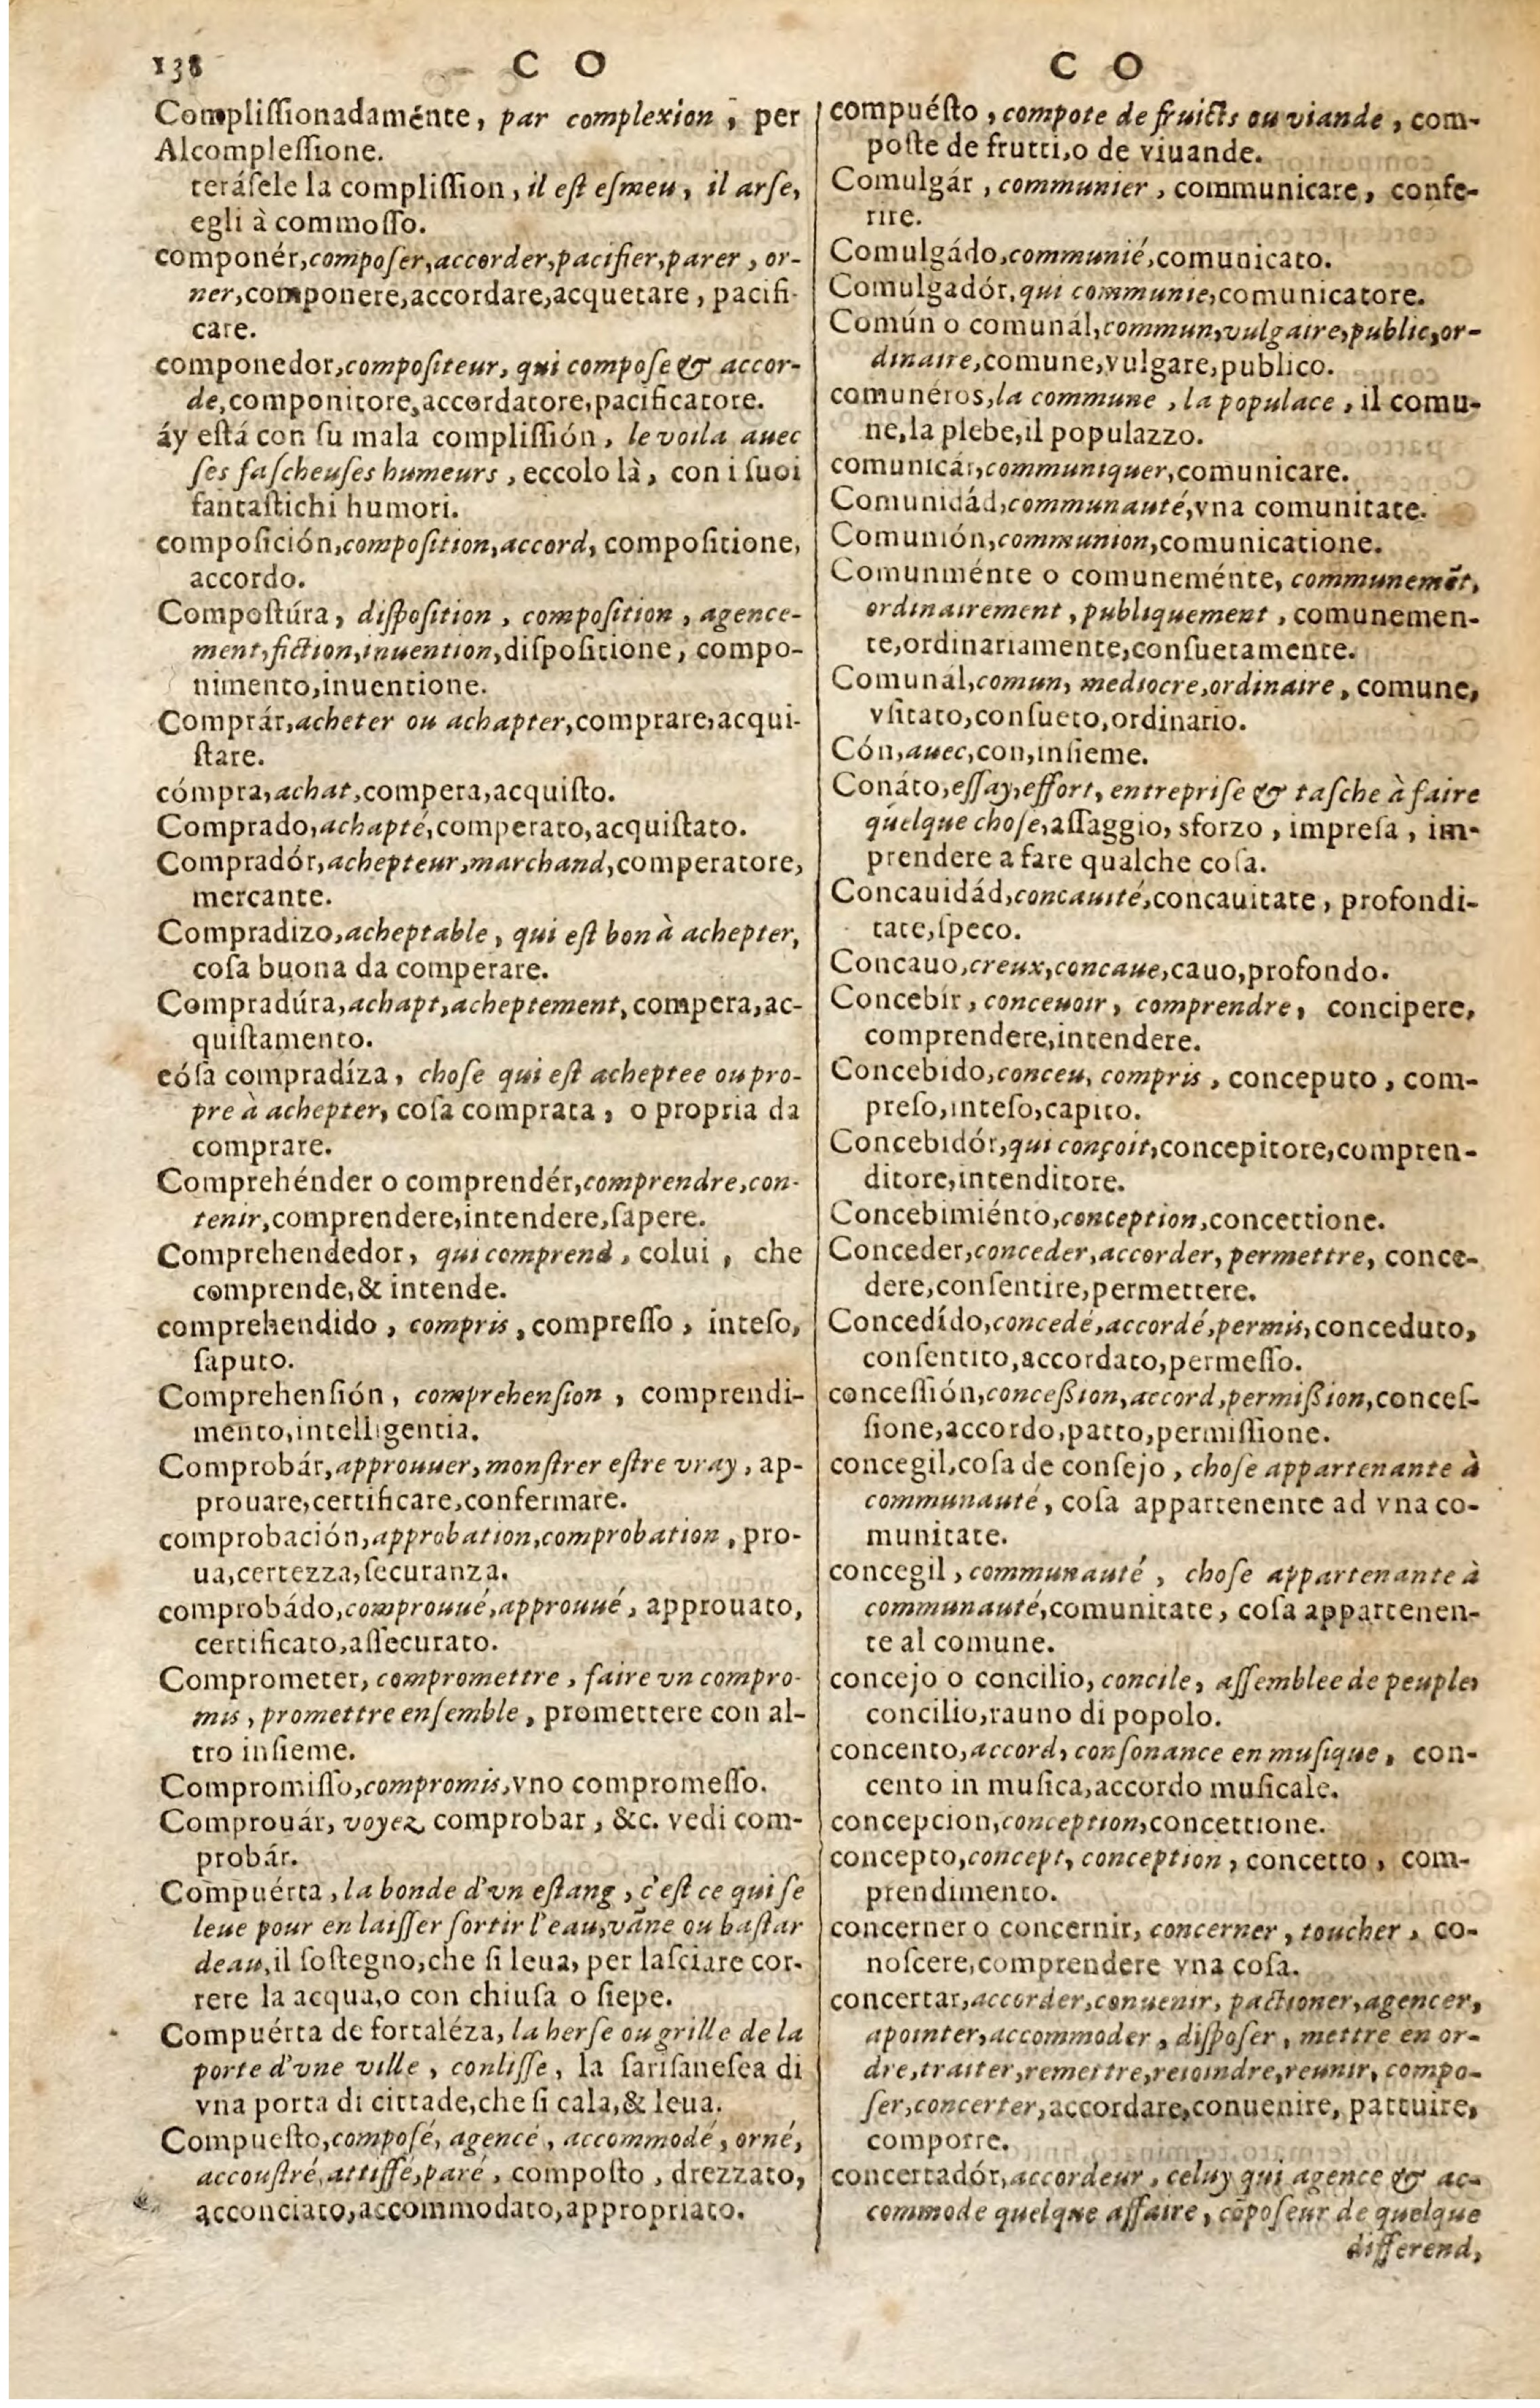 138 C O C O
Complissionadaménte, par complexion, per
Alcomplessione.
terásele la complission, il est esmeu, il arse,
egli à commosso.
componér, composer, accorder, pacifier, parer, or-
ner, componere, accordare, acquetare, pacifi-
care.
componedor, compositeur, qui compose & accor-
de, componitore, accordatore, pacificatore.
áy está con su mala complissión, le voila auec
ses fascheuses humeurs, eccolo là, con i suoi
fantastichi humori.
composición, composition, accord, compositione,
accordo.
Compostúra, disposition, composition, agence-
ment, fiction, inuention, dispositione, compo-
nimento, inuentione.
Comprár, acheter ou achapter, comprare, acqui-
stare.
cómpra, achat, compera, acquisto.
Comprado, achapté, comperato, acquistato.
Compradór, achepteur, marchand, comperatore,
mercante.
Compradizo, acheptable, qui est bon à achepter,
cosa buona da comperare.
Compradúra, achapt, acheptement, compera, ac-
quistamento.
cósa compradíza, chose qui est acheptee ou pro-
pre à achepter, cosa comprata, o propria da
comprare.
Comprehénder o comprendér, comprendre, con-
tenir, comprendere, intendere, sapere.
Comprehendedor, qui comprend, colui, che
comprende, & intende.
comprehendido, compris, compresso, inteso,
saputo.
Comprehensión, comprehension, comprendi-
mento, intelligentia.
Comprobár, approuuer, monstrer estre vray, ap-
prouare, certificare, confermare.
comprobación, approbation, comprobation, pro-
ua, certezza, securanza.
comprobádo, comprouué, approuué, approuato,
certificato, assecurato.
Comprometer, compromettre, faire vn compro-
mis, promettre ensemble, promettere con al-
tro insieme.
Compromisso, compromis, vno compromesso.
Comprouár, voyez comprobar, &c. vedi com-
probár.
Compuérta, la bonde d'vn estang, c'est ce qui se
leue pour en laisser sortir l'eau, väne ou bastar
deau, il sostegno, che si leua, per lasciare cor-
rere la acqua, o con chiusa o siepe.
Compuérta de fortaléza, la herse ou grille de la
porte d'vne ville, conlisse, la sarisanesea di
vna porta di cittade, che si cala, & leua.
Compuesto, composé, agencé, accommodé, orné,
accoustré, attiffé, paré, composto, drezzato,
acconciato, accommodato, appropriato.
compuésto, compote de fruicts ou viande, com-
poste de frutti, o de viuande.
Comulgár, communier, communicare, confe-
rire.
Comulgádo, communié, comunicato.
Comulgadór, qui communie, comunicatore.
Común o comunál, commun, vulgaire, public, or-
dinaire, comune, vulgare, publico.
comunéros, la commune, la populace, il comu-
ne, la plebe, il populazzo.
comunicár, communiquer, comunicare.
Comunidád, communauté, vna comunitate.
Comunión, communion, comunicatione.
Comunménte o comuneménte, communemẽt,
ordinairement, publiquement, comunemen-
te, ordinariamente, consuetamente.
Comunál, comun, mediocre, ordinaire, comune,
vsitato, consueto, ordinario.
Cón, auec, con, insieme.
Conáto, essay, effort, entreprise & tasche à faire
quelque chose, assaggio, sforzo, impresa, im-
prendere a fare qualche cosa.
Concauidád, concauité, concauitate, profondi-
tate, speco.
Concauo, creux, concaue, cauo, profondo.
Concebír, conceuoir, comprendre, concipere,
comprendere, intendere.
Concebido, conceu, compris, conceputo, com-
preso, inteso, capito.
Concebidór, qui conçoit, concepitore, compren-
ditore, intenditore.
Concebimiénto, conception, concettione.
Conceder, conceder, accorder, permettre, conce-
dere, consentire, permettere.
Concedído, concedé, accordé, permis, conceduto,
consentito, accordato, permesso.
concessión, concession, accord, permission, conces-
sione, accordo, patto, permissione.
concegil, cosa de consejo, chose appartenante à
communauté, cosa appartenente ad vna co-
munitate.
concegil, communauté, chose appartenante à
communauté, comunitate, cosa appartenen-
te al comune.
concejo o concilio, concile, assemblee de peuple,
concilio, rauno di popolo.
concento, accord, consonance en musique, con-
cento in musica, accordo musicale.
concepcion, conception, concettione.
concepto, concept, conception, concetto, com-
prendimento.
concerner o concernir, concerner, toucher, co-
noscere, comprendere vna cosa.
concertar, accorder, conuenir, pactioner, agencer,
apointer, accommoder, disposer, mettre en or-
dre, traiter, remettre, reioindre, reunir, compo-
ser, concerter, accordare, conuenire, pattuire,
comporre.
concertadór, accordeur, celuy qui agence & ac-
commode quelque affaire, cõposeur de quelque
differend,